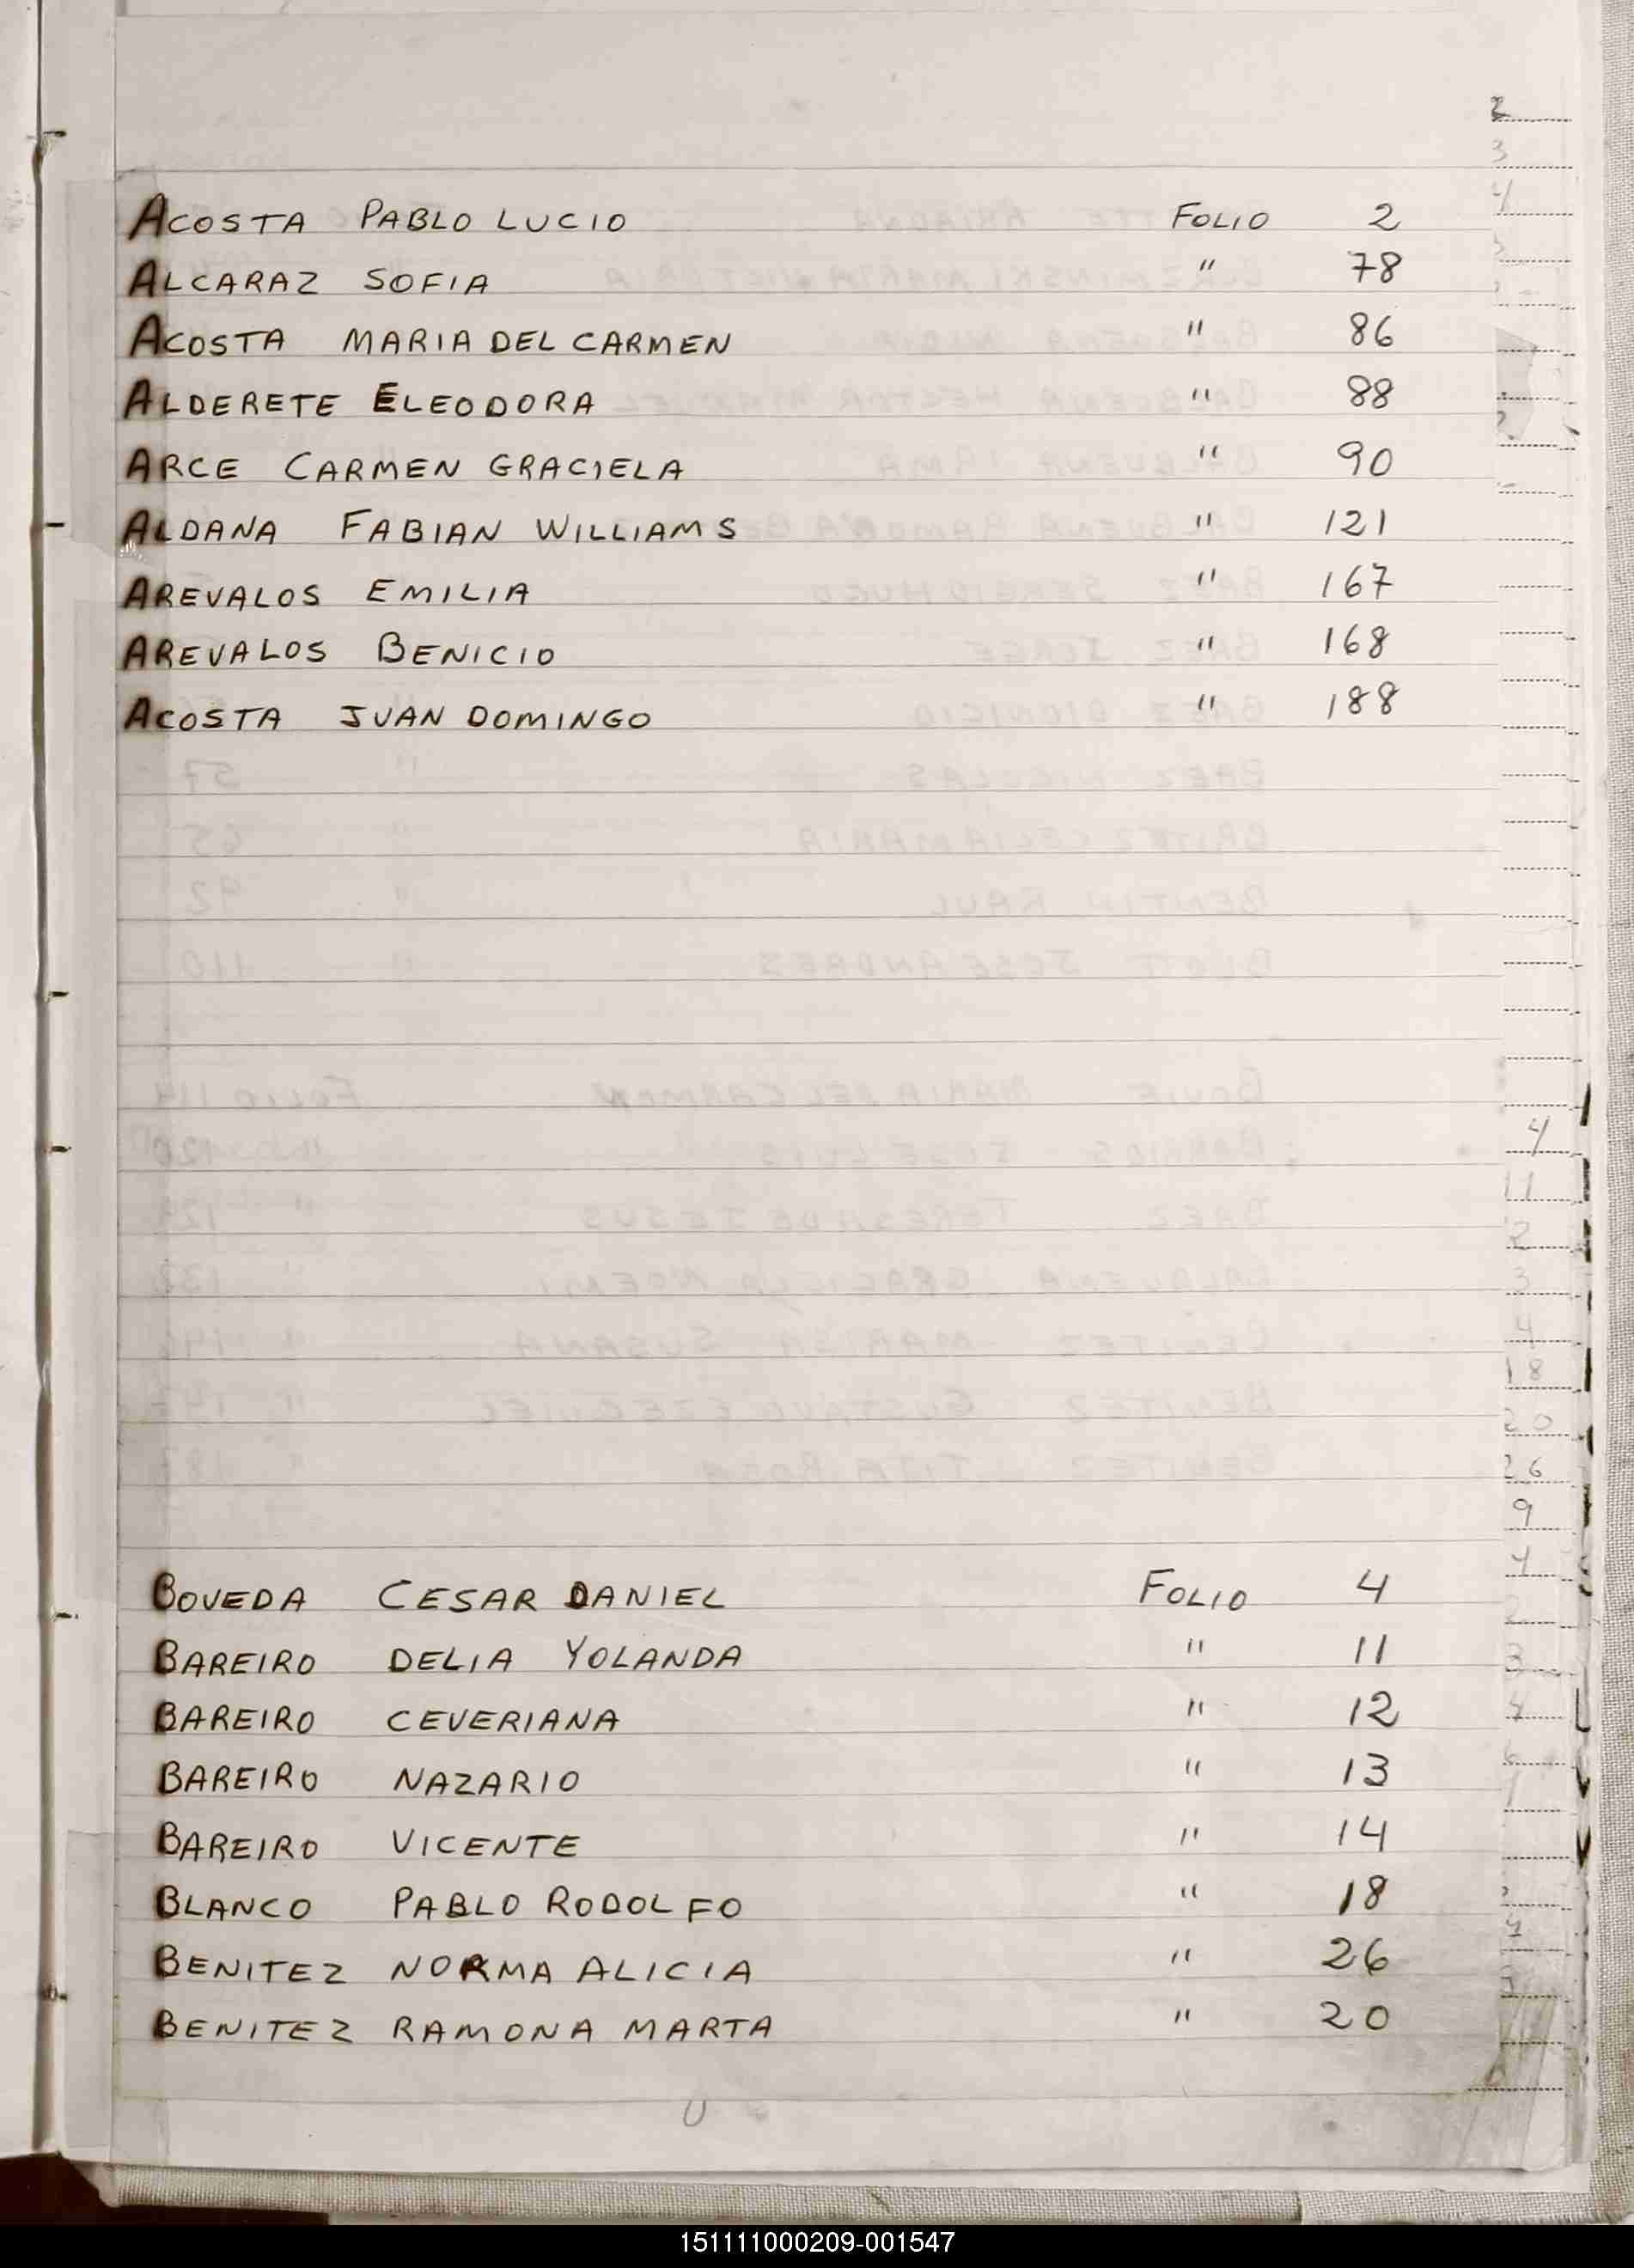 ACOSTA PABLO LUCIO FOLIO 2
ALCARAZ SOFIA " 78
ACOSTA MARIA DEL CARMEN " 86
ALDERETE ELEODORA " 88
ARCE CARMEN GRACIELA " 90
ALDANA FABIAN WILLIAMS " 121
AREVALOS EMILIA " 167
AREVALOS BENICIO " 168
ACOSTA JUAN DOMINGO " 188
BOVEDA CESAR DANIEL FOLIO 4
BAREIRO DELIA YOLANDA " 11
BAREIRO CEVERIANA " 12
BAREIRO NAZARIO " 13
BAREIRO VICENTE " 14
BLANCO PABLO RODOLFO " 18
BENITEZ NORMA ALICIA " 26
BENITEZ RAMONA MARTA " 20
151111000209-001547